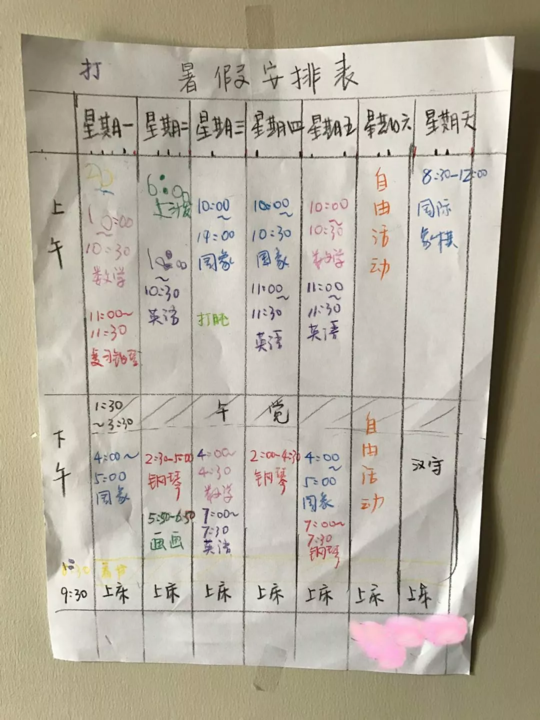 打
暑假安排表
星期一 星期二 星期三 星期四 星期五 星期六 星期天
上午
10:00
~
10:30
数学
11:00~
11:30
复习钢琴
6:00
出发
10:00
~
10:30
英语
10:00
~
14:00
国象
打肫
10:00
~
10:30
国象
11:00
~
11:30
英语
10:00
~
10:30
数学
11:00
~
11:30
英语
自由活动
8:30-12:00
国际
象棋
1:30
~3:30
午觉
下午
4:00~
5:00
国象
2:30-5:00
钢琴
5:50-6:50
画画
4:00~
4:30
数学
7:00~
7:30
英语
2:00-4:30
钢琴
4:00
~
5:00
国象
7:00~
7:30
钢琴
自由活动
汉字
9:30 上床 上床 上床 上床 上床 上床 上床